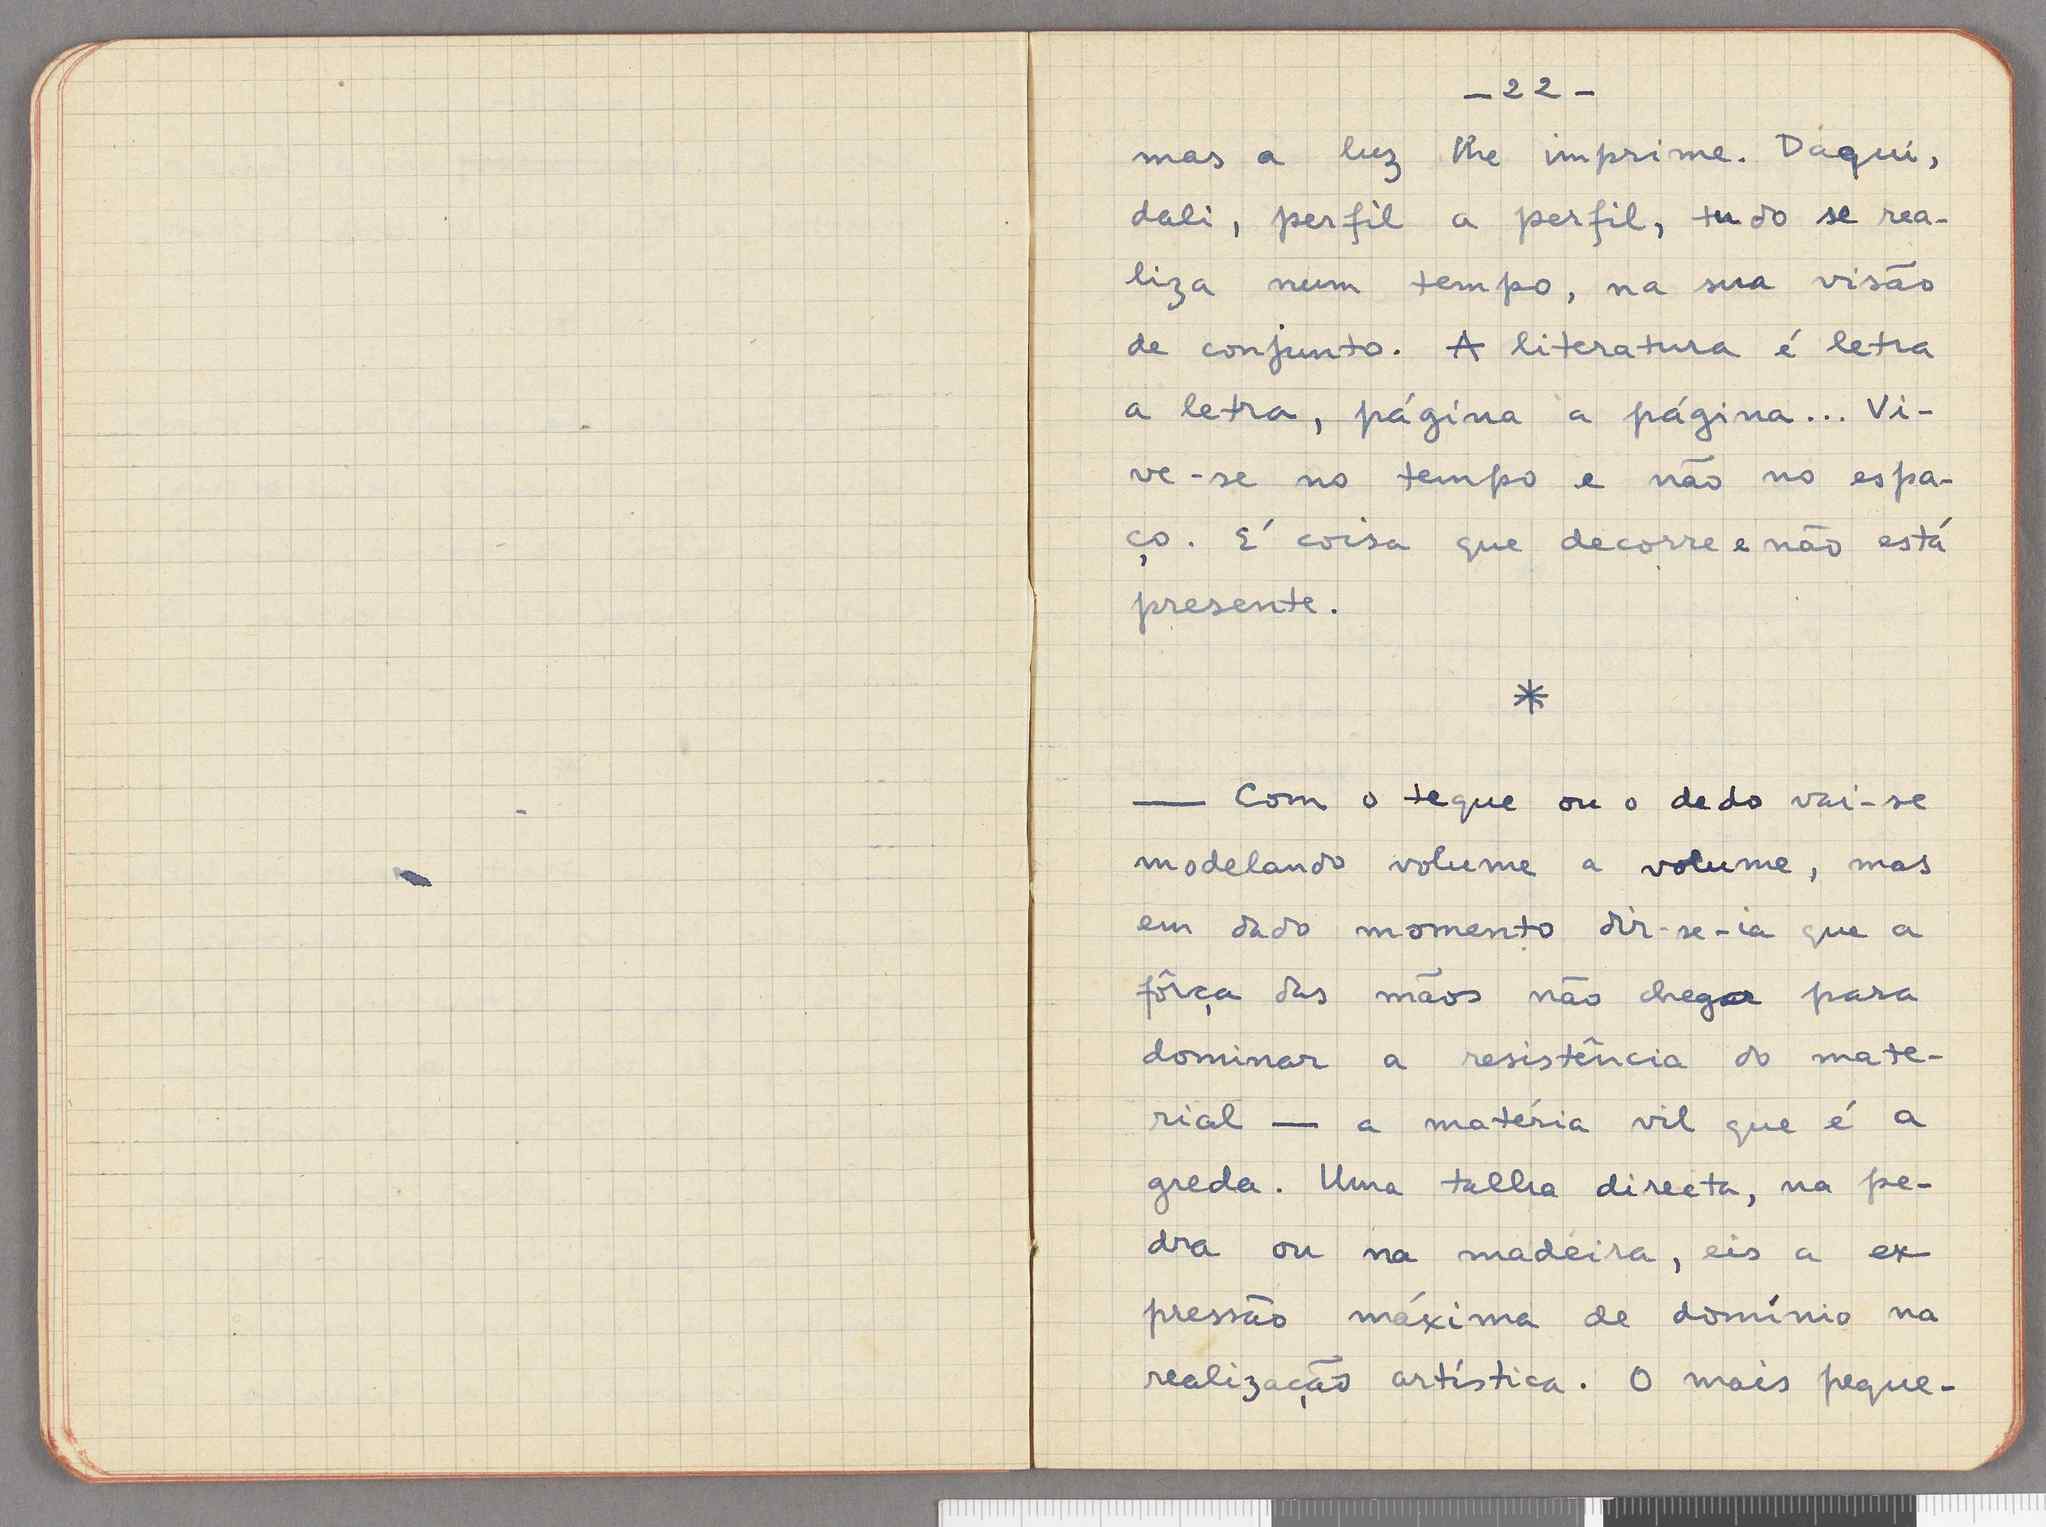 -22-
mas a luz lhe imprime. Daqui,
dali, perfil a perfil, tudo se rea-
liza num tempo, na sua visão
de conjunto. A literatura é letra
a letra, página a página... Vi-
ve-se no tempo e não no espa-
ço. É coisa que decorre e não está
presente.
*
— Com o teque ou o dedo vai-se
modelando volume a volume, mas
em dado momento dir-se-ia que a
fôrça das mãos não chegar para
dominar a resistência do mate-
rial — a matéria vil que é a
greda. Uma talha directa, na pe-
dra ou na madeira, eis a ex
pressão máxima de domínio na
realização artística. O mais peque-